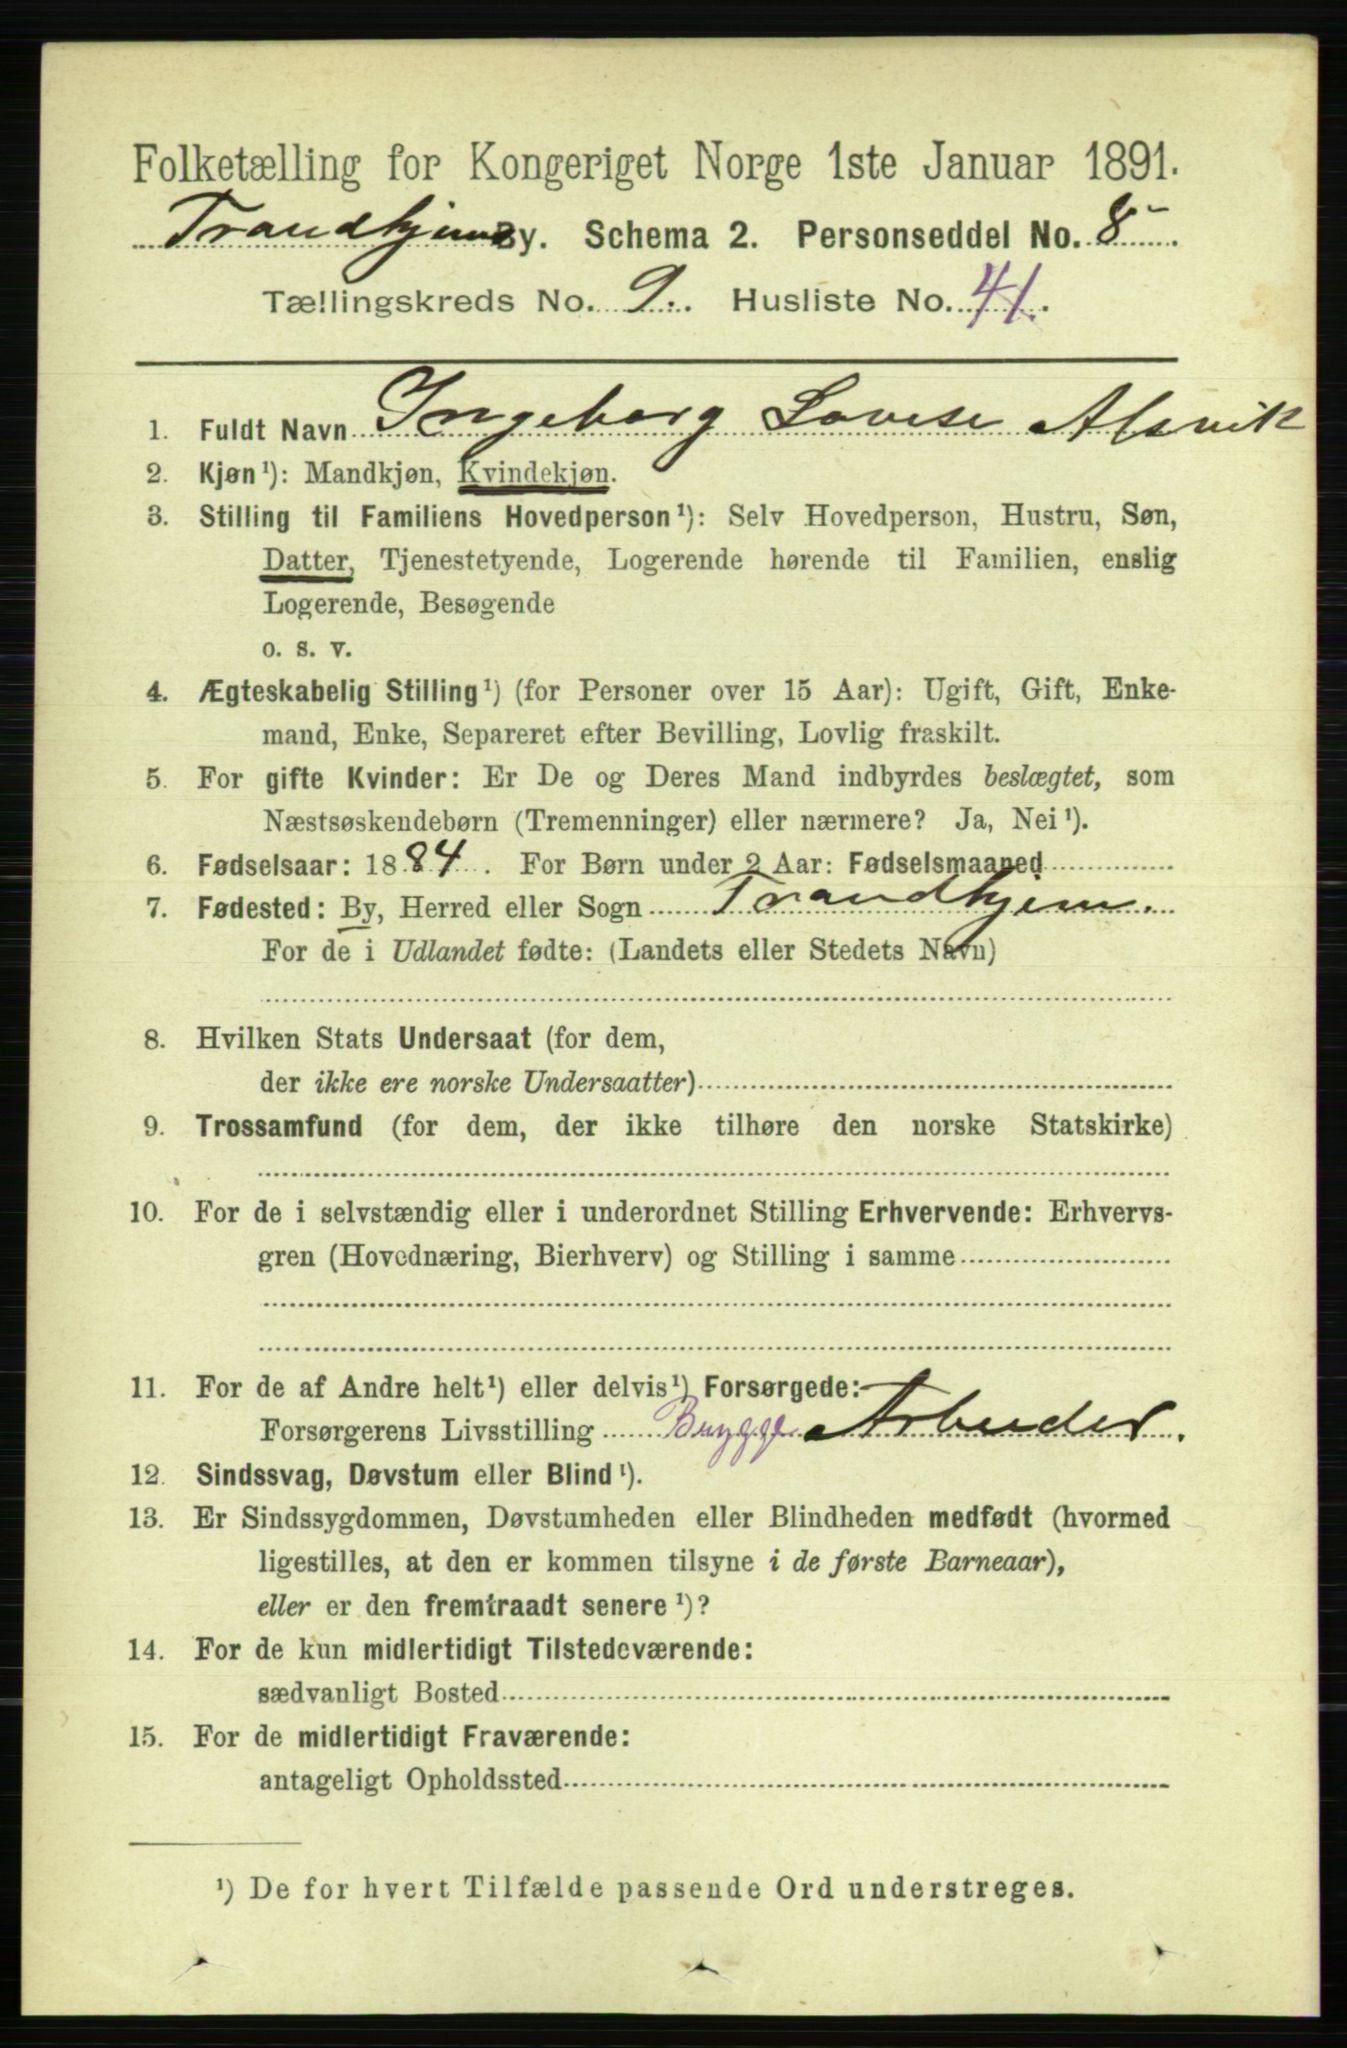 Folketælling for Kongeriget Norge 1ste Januar 1891.
Trondhjems By. Schema 2. Personseddel No. 8
Tællingskreds No. 9. Husliste No. 41.
1. Fuldt Navn Ingeborg Lovise Alsvik
2. Kjøn¹): Mandkjøn, Kvindekjøn.
3. Stilling til Familiens Hovedperson¹): Selv Hovedperson, Hustru, Søn,
Datter, Tjenestetyende, Logerende hørende til Familien, enslig
Logerende, Besøgende
o. s. v.
4. Ægteskabelig Stilling¹) (for Personer over 15 Aar): Ugift, Gift, Enke-
mand, Enke, Separeret efter Bevilling, Lovlig fraskilt.
5. For gifte Kvinder: Er De og Deres Mand indbyrdes beslægtet, som
Næstsøskendebørn (Tremenninger) eller nærmere? Ja, Nei¹).
6. Fødselsaar: 1884. For Børn under 2 Aar: Fødselsmaaned
7. Fødested: By, Herred eller Sogn Trondhjem.
For de i Udlandet fødte: (Landets eller Stedets Navn)
8. Hvilken Stats Undersaat (for dem,
der ikke ere norske Undersaatter)
9. Trossamfund (for dem, der ikke tilhøre den norske Statskirke)
10. For de i selvstændig eller i underordnet Stilling Erhvervende: Erhvervs-
gren (Hovednæring, Bierhverv) og Stilling i samme
11. For de af Andre helt¹) eller delvis¹) Forsørgede:
Forsørgerens Livsstilling Brygge Arbeider.
12. Sindssvag, Døvstum eller Blind¹).
13. Er Sindssygdommen, Døvstumheden eller Blindheden medfødt (hvormed
ligestilles, at den er kommen tilsyne i de første Barneaar),
eller er den fremtraadt senere¹)?
14. For de kun midlertidigt Tilstedeværende:
sædvanligt Bosted
15. For de midlertidigt Fraværende:
antageligt Opholdssted
¹) De for hvert Tilfælde passende Ord understreges.